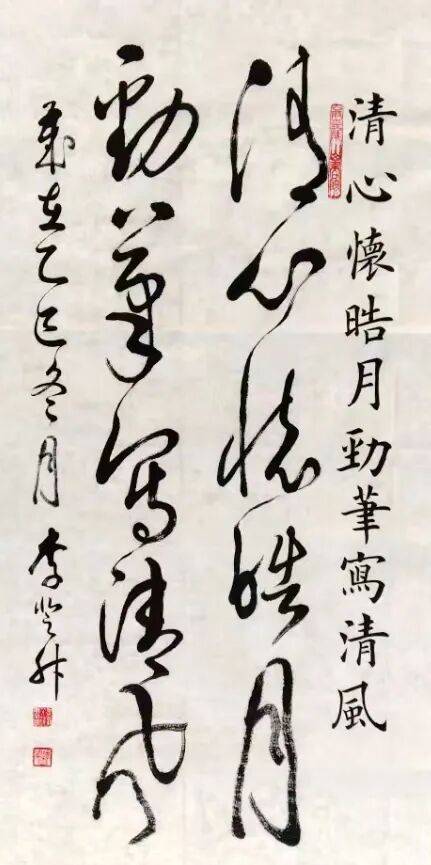 清心懷皓月勁筆寫清風
清心懷皓月
勁筆寫清風
歲在乙巳冬月 李登升